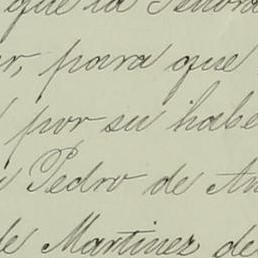 que la Señora
r, para que
por su habe
Pedro de An
de Martinez de